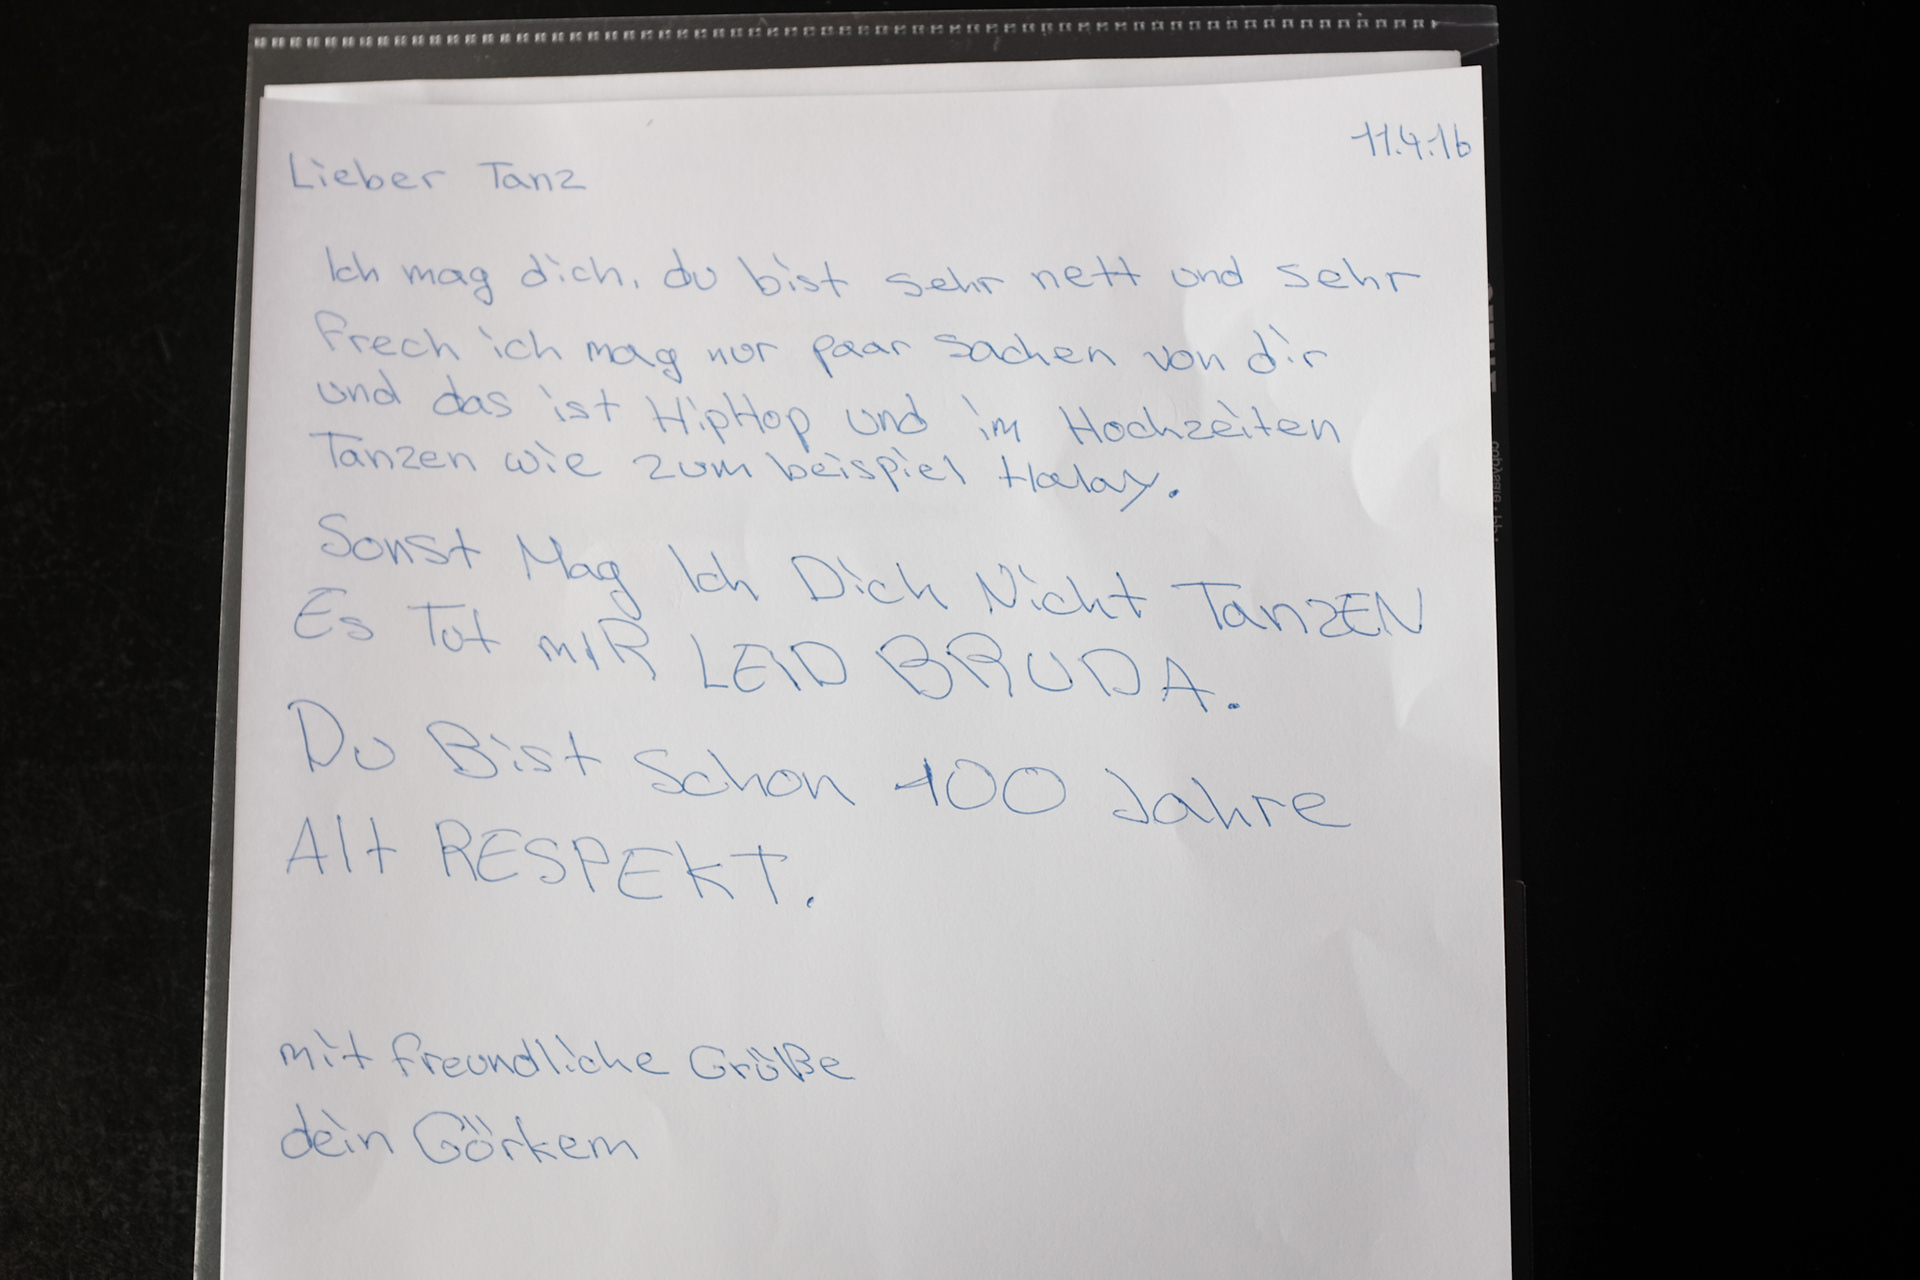 11.4.16
Lieber Tanz
Ich mag dich. du bist sehr nett und sehr
frech ich mag nur paar sachen von dir
und das ist HipHop und im Hochzeiten
Tanzen wie zum beispiel Halay.
Sonst Mag Ich Dich Nicht TanzEN
Es Tut miR LEID BRUDA.
Du Bist Schon 100 Jahre
Alt RESPEKT.
mit freundliche Grüße
dein Görkem